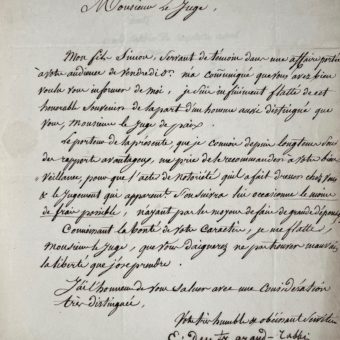 Monsieur le Juge,
Mon fils Simon, Servant de temoin dans une affaire portée
à votre audience de Vendredi dr. m'a communiqué que vous avez bien
voulu vous informer de moi, je suis infiniment flatté de cet
honorable Souvenir de la part d'un homme aussi distingué que
vous, Monsieur le Juge de paix.
Le porteur de la présente, que je connois depuis longtems sous
des rapports avantageux, me prie de le recommander à votre bien
veillance, pour que l'acte de notoriété qu'il a fait dresser chez vous
& le Jugement qui apparemt. S'en suivra lui occasionne le moins
de frais possible, n'ayant pas les moyens de faire de grandes dépenses
Connaissant la bonté de votre Caractère, je me flatte,
Monsieur le Juge, que vous daignerez ne pas trouver mauvais
la liberté que j'ose prendre.
J'ai l'honneur de vous saluer avec une Considération
très distinguée,
Votre très humble & obéissant Serviteur
grand-rabbi